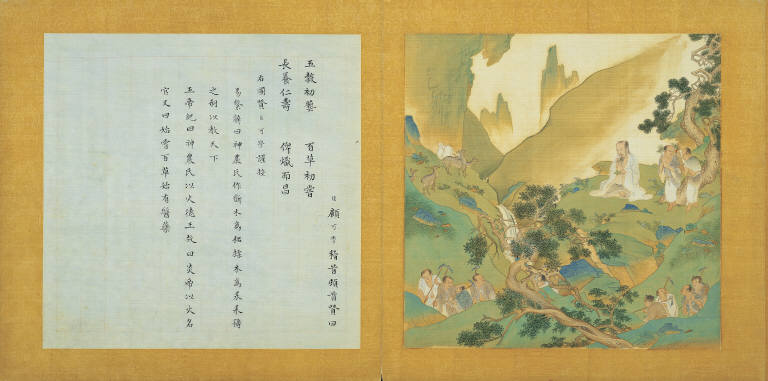 臣顧可學稽首頓首贊曰
五穀初藝 百草初嘗
長養仁壽 俾熾而昌
右圖贊臣可學謹按
易繫辭曰神農氏作斲木為耜揉木為耒耒耨
之利以教天下
五帝紀曰神農氏以火德王故曰炎帝以火名
官又曰始嘗百草始有醫藥